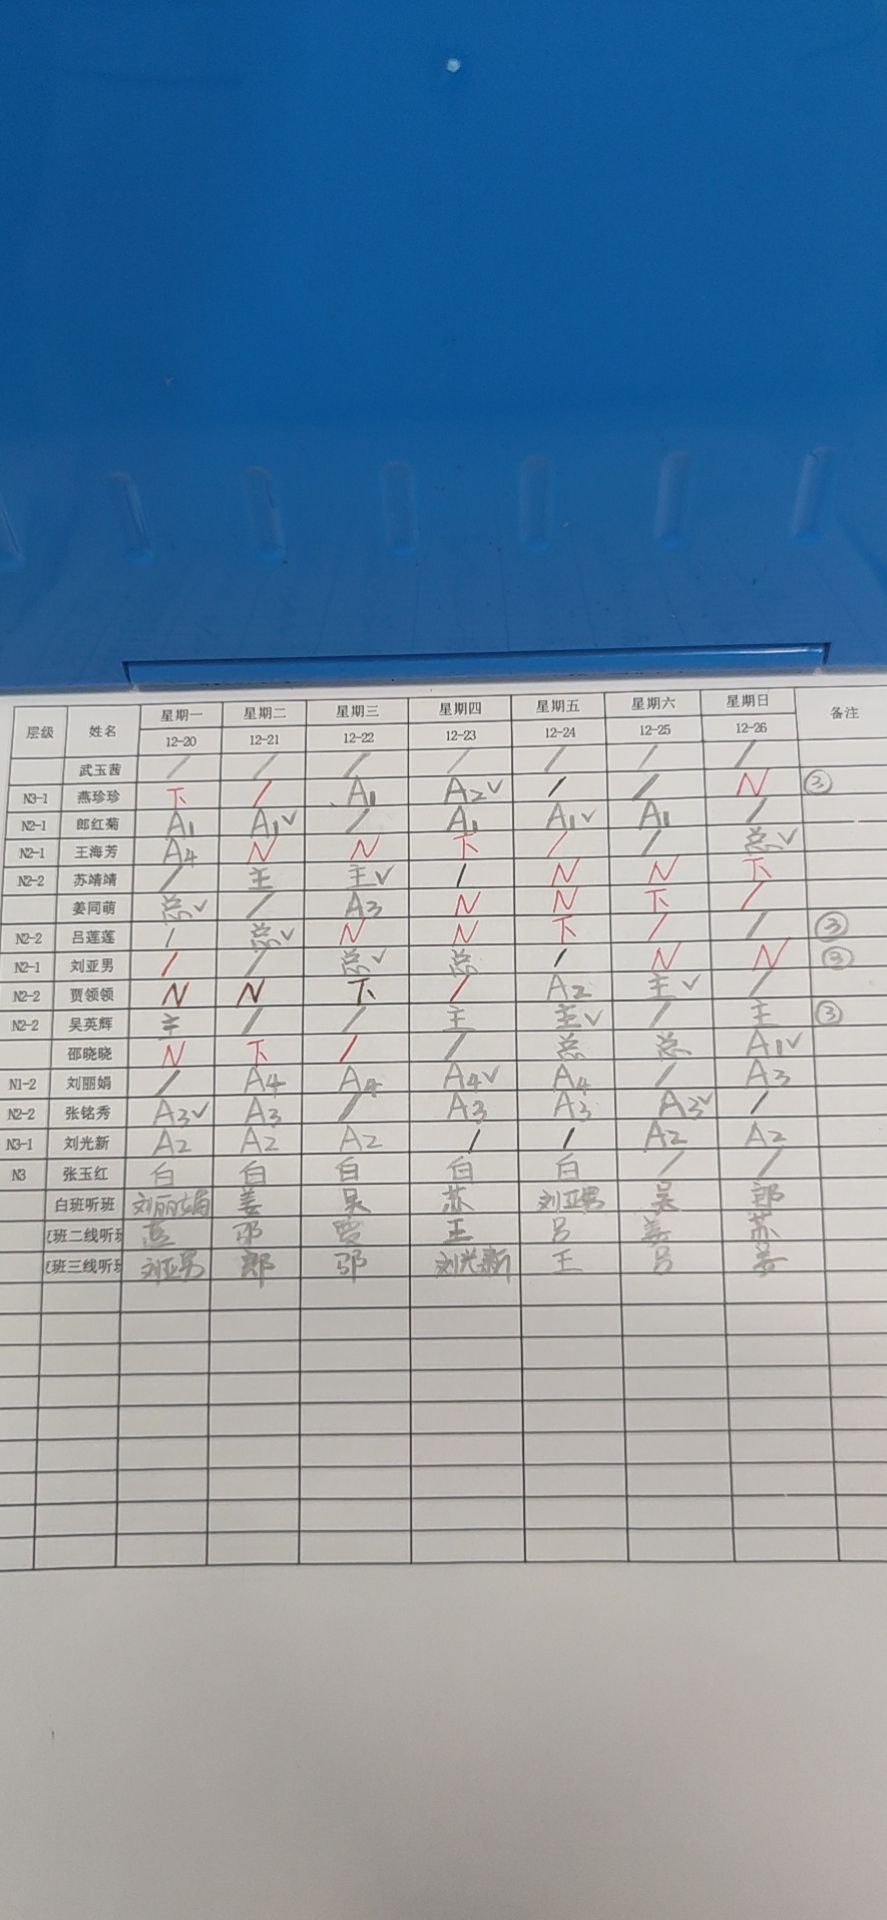 层级 姓名 星期一 星期二 星期三 星期四 星期五 星期六 星期日 备注
12-20 12-21 12-22 12-23 12-24 12-25 12-26
武玉茜 / / / / / / /
N3-1 燕珍珍 下 / A1 A2√ / / N ③
N2-1 郎红菊 A1 A1√ / A1 A1√ A1 /
N2-1 王海芳 A4 N N 下 / / 总√
N2-2 苏靖靖 / 主 主√ / N N 下
姜同萌 总√ / A3 N N 下 /
N2-2 吕莲莲 / 总√ N N 下 / / ③
N2-1 刘亚男 / / 总√ 总 / N N ③
N2-2 贾领领 N N 下 / A2 主√ /
N2-2 吴英辉 主 / / 主 主√ / 主 ③
邵晓晓 N 下 / / 总 总 A1√
N1-2 刘丽娟 / A4 A4 A4√ A4 / A3
N2-2 张铭秀 A3√ A3 / A3 A3 A3√ /
N3-1 刘光新 A2 A2 A2 / / A2 A2
N3 张玉红 白 白 白 白 白 / /
白班听班 刘丽娟 姜 吴 苏 刘亚男 吴 郎
班二线听班 王 吕 姜 苏
班三线听班 刘亚男 郎 邵 刘光新 王 吕 姜